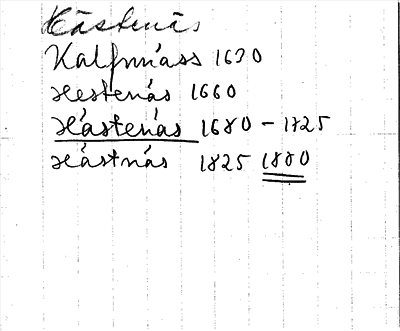 Hästenäs
Kalfmäss 1630
Hestenäs 1660
Hästenäs 1680 - 1725
Hästnäs 1825 1880